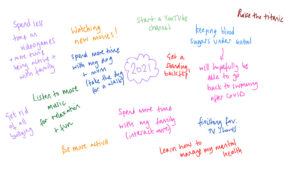 Spend less
time on
videogames
+ more time
being active +
with family
Watching
new movies!
Start a YouTube
channel
Keeping blood
sugars under control
Raise the titanic
spend more time
with my dog
+ mum
(take the dog
for a walk)
2021
Get a
standing
backseat!
will hopefully be
able to go
back to swimming
after CoviD
Listen to more
music
for relaxation
+ fun
Get rid
of all
Spend more time
with my family
(interact more)
finishing
TV shows
Be more active
Learn how to
manage my mental
health